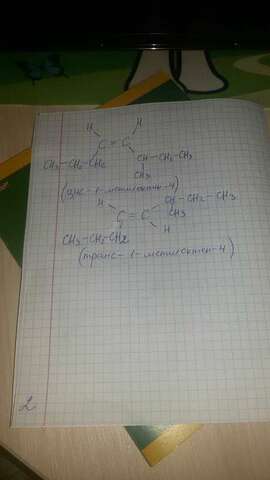 H H
C = C
CH₃-CH₂-CH₂ CH-CH₂-CH₃
CH₃
(цис-1-метилоктен-4)
H CH-CH₂-CH₃
C = C CH₃
CH₃-CH₂-CH₂ H
(транс-1-метилоктен-4)
2